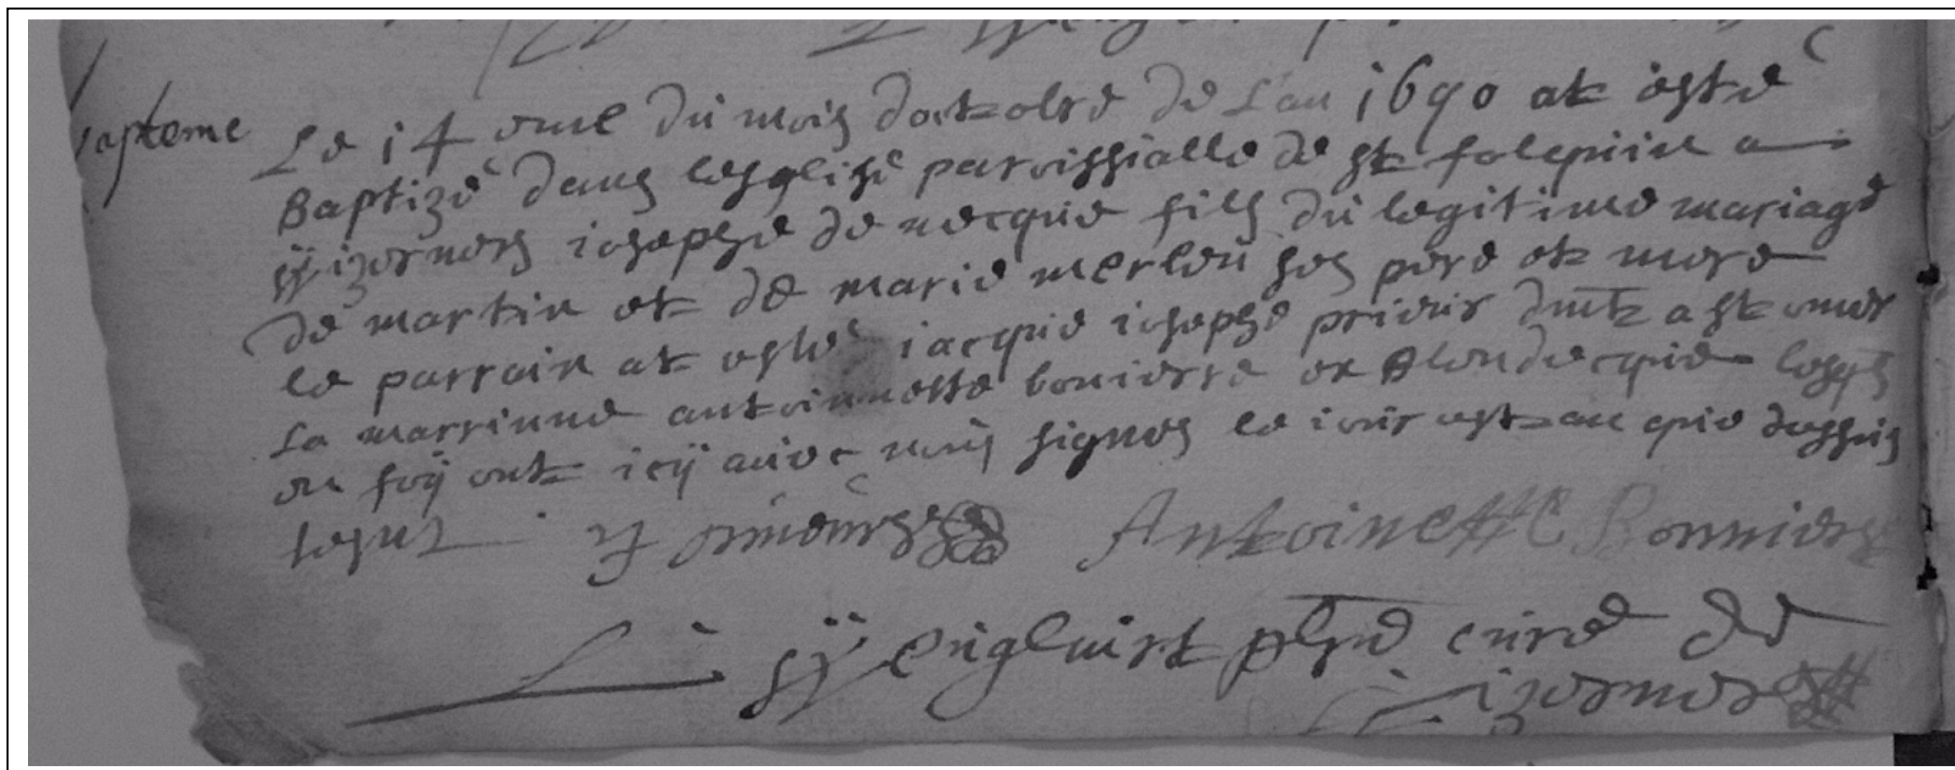 bapteme
Le 14 eme du mois doctobre de L'an 1690 at esté
Baptizé dans lesglise paroissialle de st folquin a
wizernes iosephe de necque fils du legitime mariage
de martin et de marie merlen ses pere et mere
le parrain at esté iacque iosephe prieur dmt a st omer
La marrinne antoinnette bonierre de Blendecque lesqls
en foÿ ont icÿ avvec nous signes le iour est an que dessus
Antoinette Bonniere
pbre curé de
wizernes